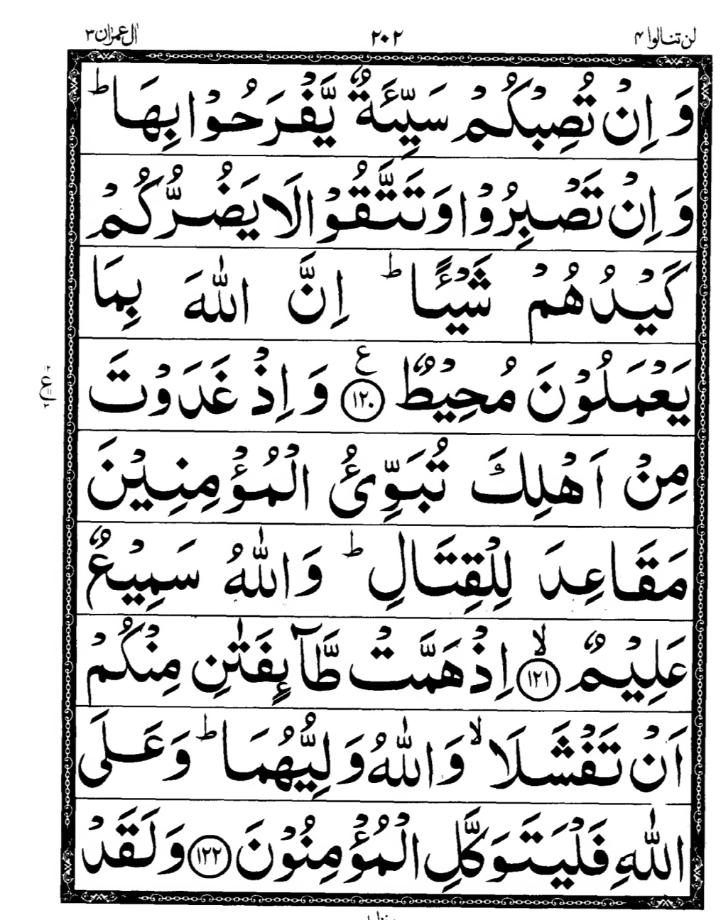 لن تنالوا ۴ ۲۰۲ اٰل عمرٰن ۳
وَ اِنْ تُصِبْكُمْ سَیِّئَةٌ یَّفْرَحُوْا بِهَا ؕ
وَ اِنْ تَصْبِرُوْا وَ تَتَّقُوْا لَا یَضُرُّكُمْ
كَیْدُهُمْ شَیْـًٔا ؕ اِنَّ اللّٰهَ بِمَا
یَعْمَلُوْنَ مُحِیْطٌ ۱۲۰ ع وَ اِذْ غَدَوْتَ
مِنْ اَهْلِكَ تُبَوِّئُ الْمُؤْمِنِیْنَ
مَقَاعِدَ لِلْقِتَالِ ؕ وَ اللّٰهُ سَمِیْعٌ
عَلِیْمٌ ۱۲۱ ۙ اِذْ هَمَّتْ طَّآىِٕفَتٰنِ مِنْكُمْ
اَنْ تَفْشَلَا ۙ وَ اللّٰهُ وَلِیُّهُمَا ؕ وَ عَلَی
اللّٰهِ فَلْیَتَوَكَّلِ الْمُؤْمِنُوْنَ ۱۲۲ وَ لَقَدْ